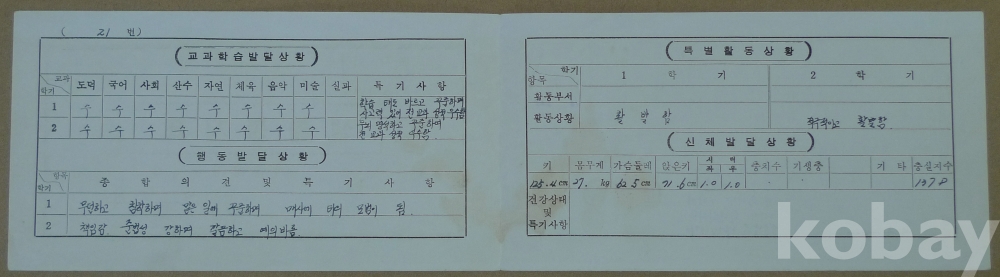 ( 21 번)
교과학습발달상황
교과 도덕 국어 사회 산수 자연 체육 음악 미술 실과 특기사항
학기
1 수 수 수 수 수 수 수 수 학습 태도 바르고 꾸준하며
사고력 있어 전교과 성적 우수함
2 수 수 수 수 수 수 수 수 두뇌 명석하고 꾸준하며
전 교과 성적 우수함
행동발달상황
항목 종합의견 및 특기사항
학기
1 우월하고 침착하며 맡은 일에 꾸준하며 매사에 바더 모범이 됨.
2 책임감, 준법성 강하며 깔끔하고 예의바름.
특별활동상황
학기 1 학기 2 학기
항목
활동부서
활동상황 활발함 활발함.
신체발달상황
키 몸무게 가슴둘레 앉은키 시력 좌 우 충치수 기생충 기타 충실지수
125.4cm 27. kg 62.5cm 71.6cm 1.0 1.0 1378
건강상태
및
특기사항
kobay